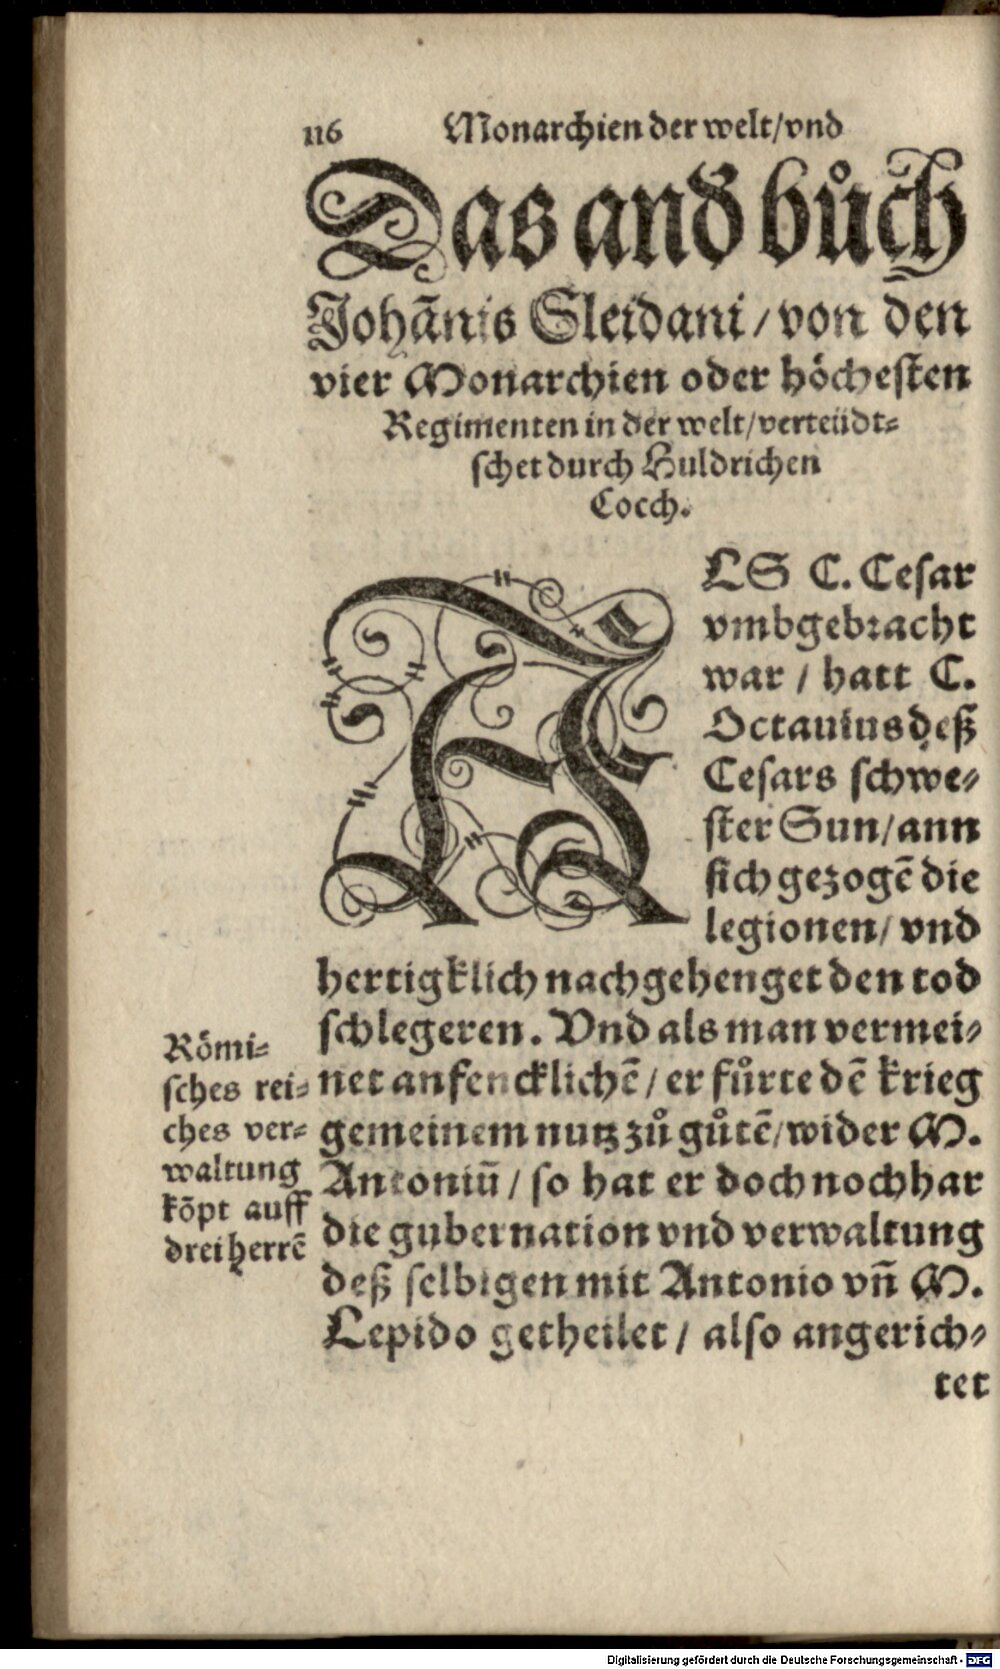 116 Monarchien der welt/vnd
Das and bůch
Johãnis Sleidani/von den
vier Monarchien oder höchesten
Regimenten in der welt/verteüdt⸗
schet durch Huldrichen
Cocch.
ALS C. Cesar
vmbgebracht
war / hatt C.
Octauius deß
Cesars schwe⸗
ster Sun/ann
sich gezogẽ die
legionen/ vnd
hertigklich nachgehenget den tod
schlegeren. Vnd als man vermei⸗
net anfencklichẽ/er fůrte dẽ krieg
gemeinem nutz zů gůtẽ/wider M.
Antoniũ/so hat er doch nochhar
die gubernation vnd verwaltung
deß selbigen mit Antonio vñ M.
Lepido getheilet / also angerich⸗
tet
Römi⸗
sches rei⸗
ches ver⸗
waltung
kõpt auff
drei herrẽ
Digitalisierung gefördert durch die Deutsche Forschungsgemeinschaft - DFG